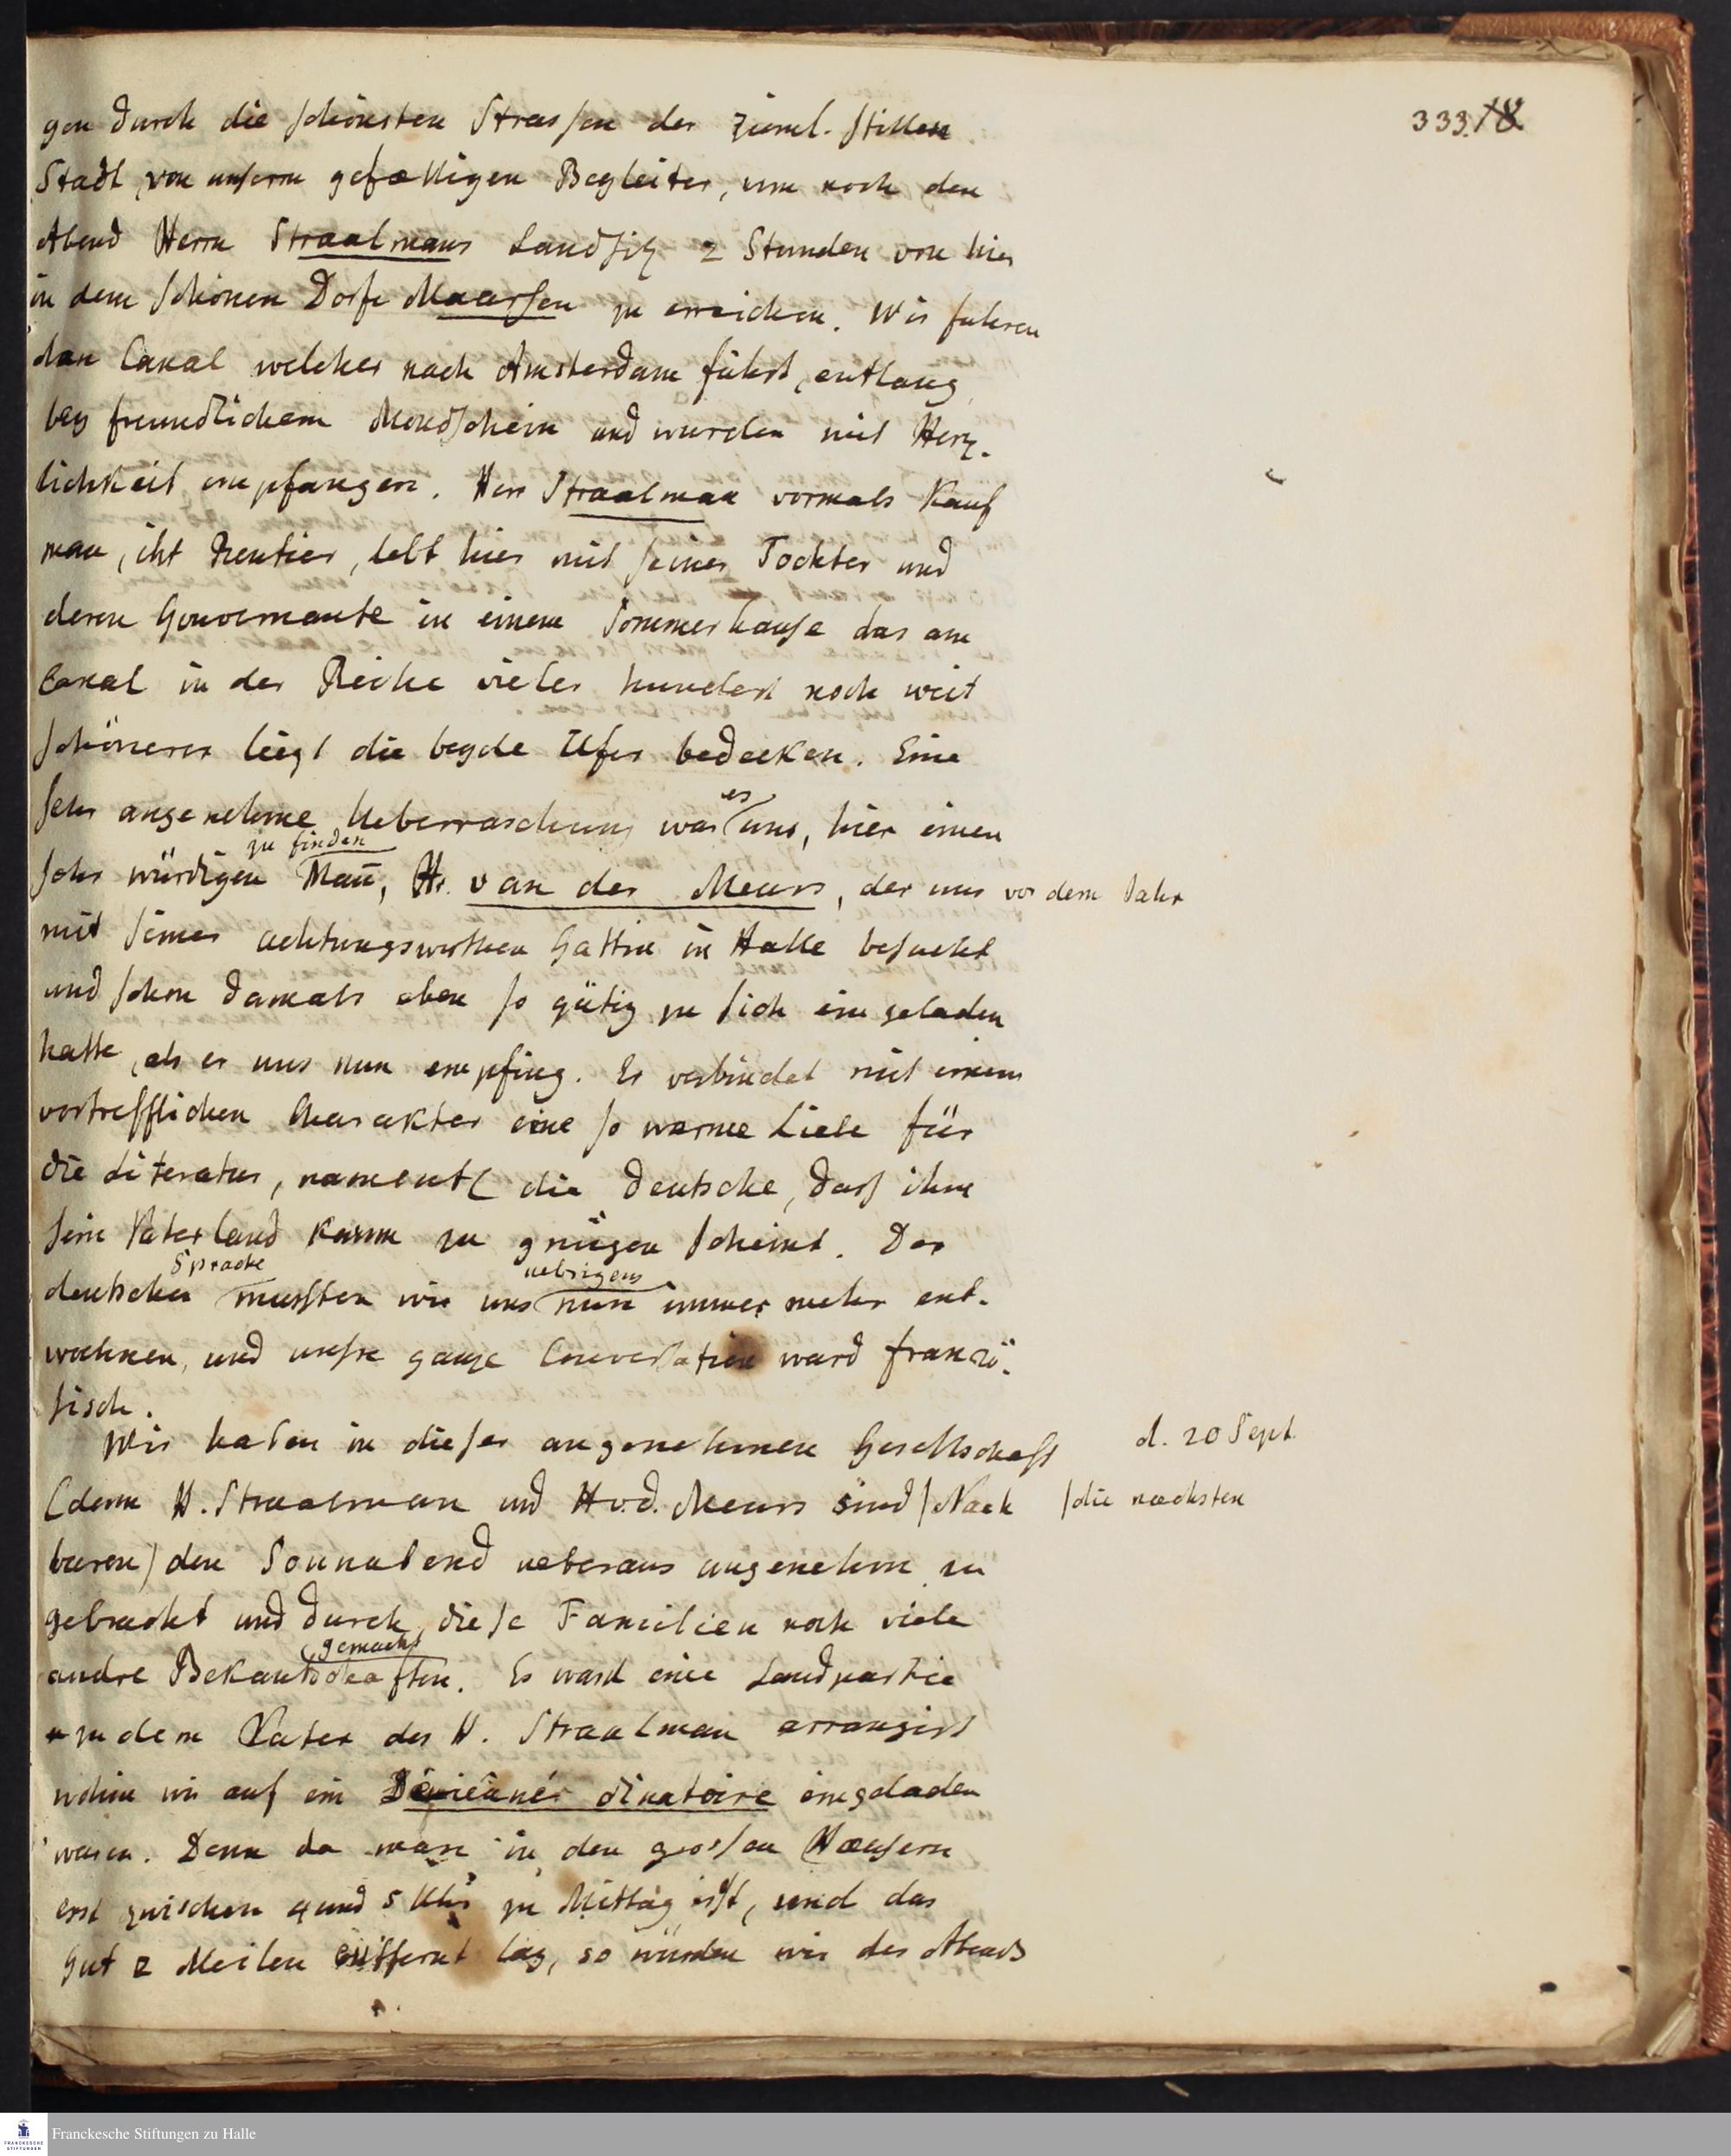 333.
gen durch die schönsten Strassen der zieml. stillen
Stadt, von unserm gefælligen Begleiter, um noch den
Abend Herrn Straalmans Landsitz 2 Stunden von hier
in dem schönen Dorfe Maarsen zu erreichen. Wir fuhren
den Canal welcher nach Amsterdam führt, entlang
bey freundlichem Mondschein und wurden mit Herz-
lichkeit empfangen. Herr Straalman vormals Kauf
man, itzt Rentier, lebt hier mit seiner Tochter und
deren Gouvernante in einem Sommerhause das am
Canal in der Reihe vieler hundert noch weit
schönerer liegt die beyde Ufer bedecken. Eine
es
sehr angenehme Ueberraschung war uns, hier einen
zu finden
sehr würdigen Mañ, Hr. van der Meurs, der uns vor dem Jahr
mit seiner achtungswerthen Gattin in Halle besucht
und schon damals eben so gütig zu sich eingeladen
hatte, als er uns nun empfing. Er verbindet mit einem
vortrefflichen Charakter eine so warme Liebe für
die Literatur, namentl die deutsche, dass ihm
sein Vaterland kaum zu gnügen scheint. Der
Sprache uebrigens
deutschen mussten wir uns nun immer mehr ent-
wöhnen, und unsre ganze Conversation ward franzö-
sisch.
Wir haben in dieser angenehmen Gesellschaft d. 20 Sept.
(denn H. Straalman und H v.d. Meurs sind / Nach /die næchsten
baren) den Sonnabend ueberaus angenehm zu
gebracht und durch diese Familien noch viele
gemacht
andre Bekantschaften. Es ward eine Landpartie
zu dem Vater des H. Straalman arrangirt
wohin wir auf ein Dejeuner dinatoire eingeladen
waren. Denn da man in den grossen Hæusern
erst zwischen 4 und 5 Uhr zu Mittag isst, und das
Gut 2 Meilen entfernt lag, so würden wir des Abends
Franckesche Stiftungen zu Halle
FRANCKESCHE
STIFTUNGEN